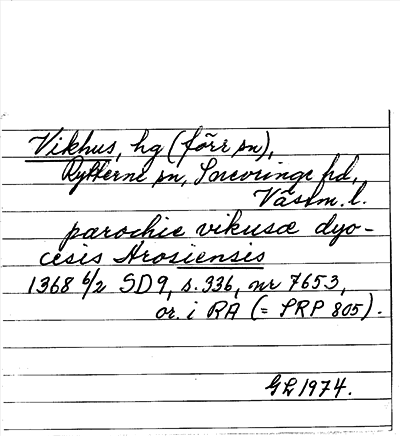 Vikhus, hg (förr sn),
Rytterne sn, Snevringe hd,
Västm. l.
parochie vikusæ dyo-
cesis Arosiensis
1368 6/2 SD9, s. 336, nr 7653,
or. i RA (= SRP 805).
GL 1974.